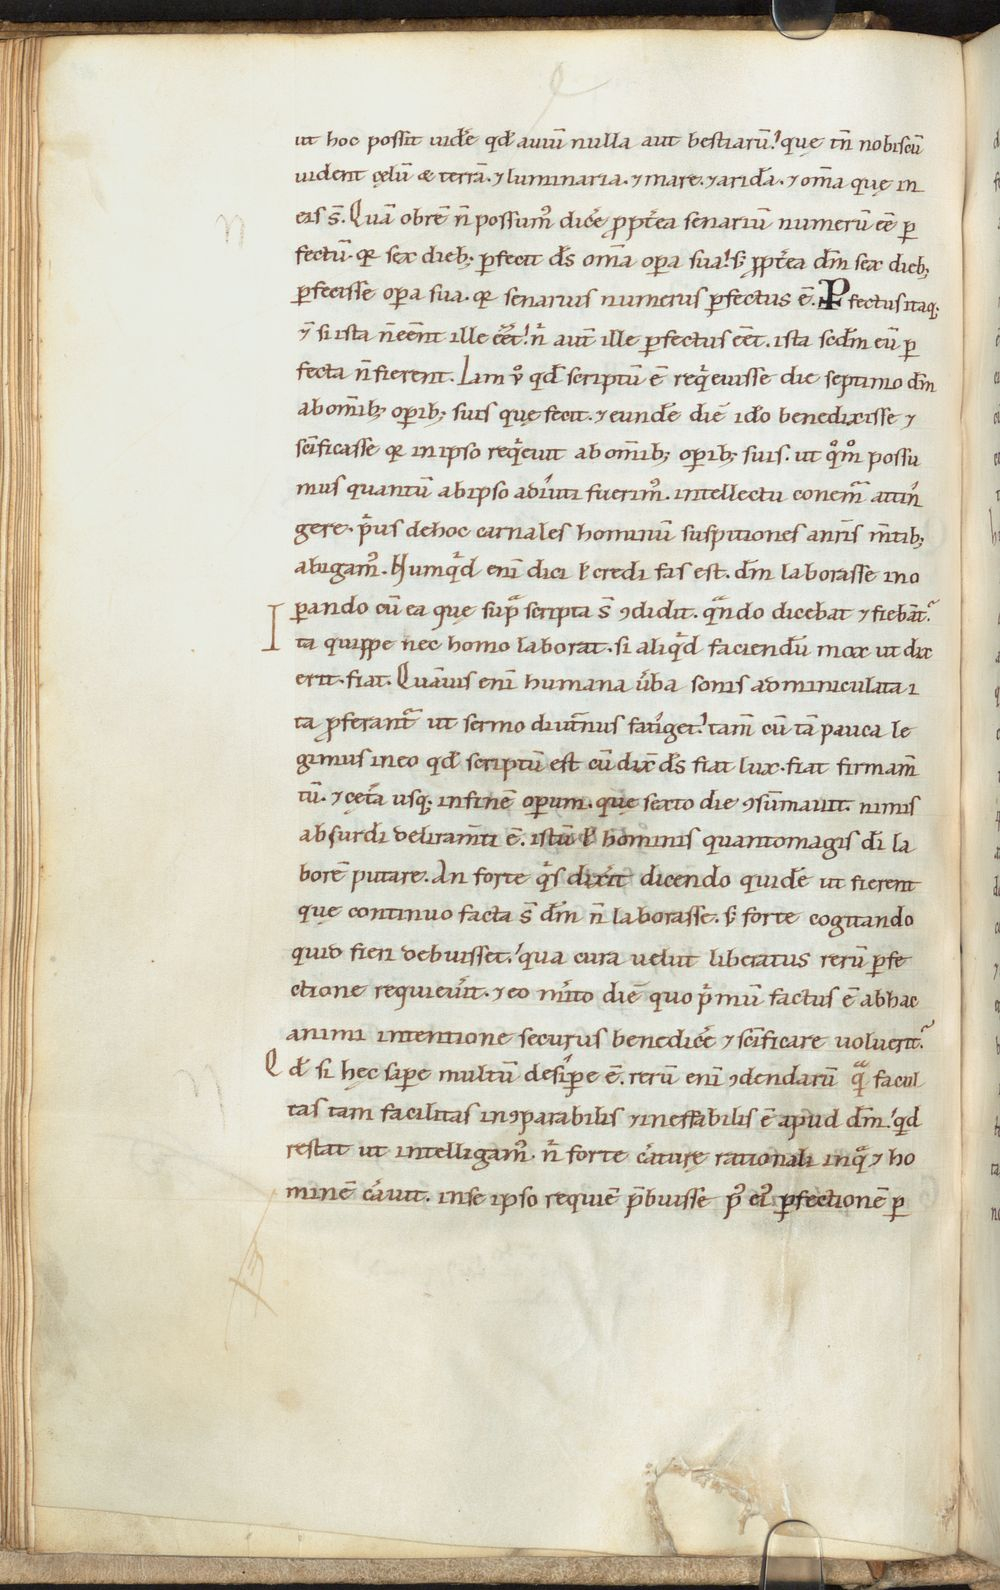 ut hoc possit uidẽ qd̃ auiũ nulla aut bestiarũ. que tñ nobiscũ
uident celũ & terrã. ⁊ luminaria. ⁊ mare. ⁊ arida. ⁊ om̃a que in
eis s̃. Quã obrẽ ñ possum᷒ dicẽ ꝓpt̃ea senariũ numerũ eẽ ꝑ
fectũ. qr sex dieb; ꝑfecit ds̃ om̃a oꝑa sua! s; ꝓpt̃ea dm̃ sex dieb;
ꝑfecisse oꝑa sua. qr senarius numerus ꝑfectus ẽ. Pfectus itaq;
⁊ si ista ñ eent̃ ille eẽt! ñ aut̃ ille ꝑfectus eẽt. ista scdm̃ eũ ꝑ
fecta ñ fierent. Iam ů qd̃ scriptũ ẽ reqͥeuisse die septimo dm̃
ab om̃ib; oꝑib; suis que fecit. ⁊ eundẽ diẽ ido benedixisse ⁊
sc̃ificasse qr in ipso reqͥeuit ab om̃ib; oꝑib; suis. ut qͦm̊ possu
mus quantũ ab ipso adiuti fuerim᷒. intellectu conem̃ attin
gere. pͥus dehoc carnales hominũ suspitiones an̄r̄is m̃tib;
abigam᷒. Numqͥd eni dici ł credi fas est. dm̃ laborasse ino
ꝑando cũ ea que supͣ scripta s̃ ꝯdidit. qͣndo dicebat ⁊ fiebãt.
Ita quippe nec homo laborat. si aliqͥd faciendũ mox ut dix
erit. fiat. Quãuis eni humana ũba sonis adminiculata i
ta ꝓferant̃ ut sermo diut̃nus fatiget. tam̃ cũ tã pauca le
gimus ineo qd̃ scriptũ est cũ dix̃ ds̃ fiat lux. fiat firmam̃
tũ. ⁊ cet̃a usq; infinẽ oꝑum. que sexto die ꝯsũmauit. nimis
absurdi deliram̃ti ẽ. istũ ł hominis quantomagis di la
borẽ putare. An forte qͥs dixẽit dicendo quidẽ ut fierent
que continuo facta s̃ dm̃ ñ laborasse. s; forte cogitando
quid fieri debuisset. qua cura uelut liberatus rerũ ꝑfe
ctione requieũit. ⁊ eo m̃ito diẽ quo pͥmũ factus ẽ abhac
animi intentione securus benedicẽ ⁊ sc̃ificare uoluerit.
Qd̃ si hec saꝑe multũ desiꝑe ẽ. rerũ eni ꝯdendarũ qͣ facul
tas tam facilitas inꝯparabilis ⁊ ineffabilis ẽ apud dm̃. qͥd
restat ut intelligam᷒. ñ forte cͥature rationali inqͣ ⁊ ho
minẽ cͥauit. inse ipso requiẽ p̃buisse p᷒ ei᷒ ꝑfectionẽ ꝑ